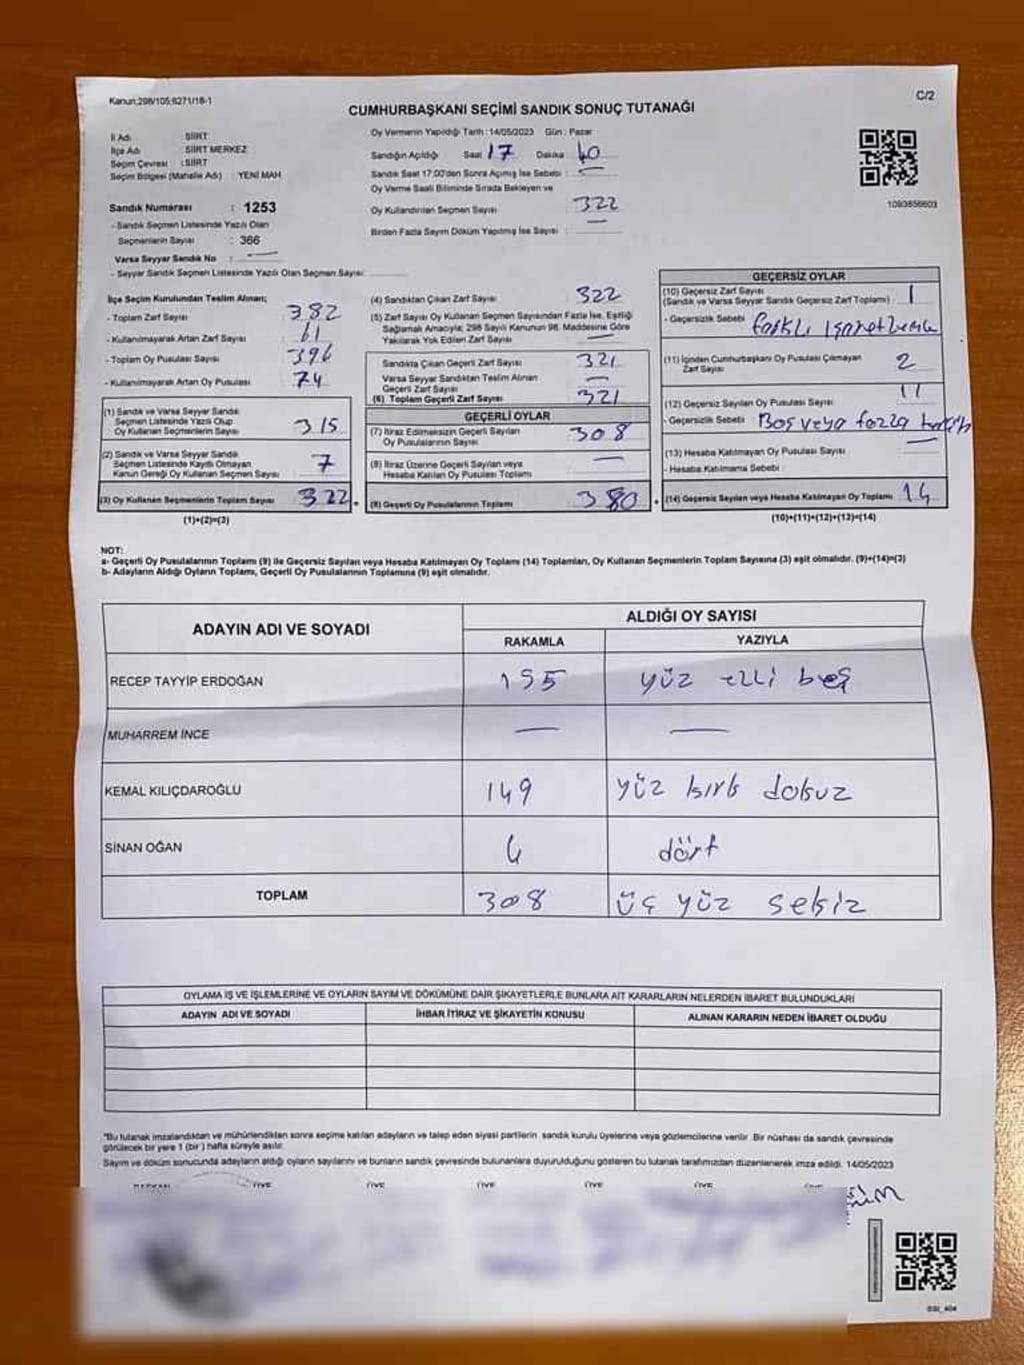 Kanun:298/105;6271/18-1
C/2
CUMHURBAŞKANI SEÇİMİ SANDIK SONUÇ TUTANAĞI
İl Adı : SİİRT
İlçe Adı : SİİRT MERKEZ
Seçim Çevresi : SİİRT
Seçim Bölgesi (Mahalle Adı) : YENİ MAH.
Sandık Numarası : 1253
- Sandık Seçmen Listesinde Yazılı Olan
Seçmenlerin Sayısı : 366
Varsa Seyyar Sandık No : —
- Seyyar Sandık Seçmen Listesinde Yazılı Olan Seçmen Sayısı:
Oy Vermenin Yapıldığı Tarih : 14/05/2023 Gün : Pazar
Sandığın Açıldığı Saat 17 Dakika 40
Sandık Saat 17:00'den Sonra Açılmış İse Sebebi : —
Oy Verme Saati Bitiminde Sırada Bekleyen ve
Oy Kullandırılan Seçmen Sayısı : 322
Birden Fazla Sayım Döküm Yapılmış İse Sayısı : —
1093856603
İlçe Seçim Kurulundan Teslim Alınan;
- Toplam Zarf Sayısı : 382
- Kullanılmayarak Artan Zarf Sayısı : 61
- Toplam Oy Pusulası Sayısı : 396
- Kullanılmayarak Artan Oy Pusulası : 74
(1) Sandık ve Varsa Seyyar Sandık
Seçmen Listesinde Yazılı Olup
Oy Kullanan Seçmenlerin Sayısı : 315
(2) Sandık ve Varsa Seyyar Sandık
Seçmen Listesinde Kayıtlı Olmayan
Kanun Gereği Oy Kullanan Seçmen Sayısı : 7
(3) Oy Kullanan Seçmenlerin Toplam Sayısı : 322
(1)+(2)=(3)
(4) Sandıktan Çıkan Zarf Sayısı : 322
(5) Zarf Sayısı Oy Kullanan Seçmen Sayısından Fazla İse, Eşitliği
Sağlamak Amacıyla; 298 Sayılı Kanunun 98. Maddesine Göre
Yakılarak Yok Edilen Zarf Sayısı : —
Sandıkta Çıkan Geçerli Zarf Sayısı : 321
Varsa Seyyar Sandıktan Teslim Alınan
Geçerli Zarf Sayısı : —
(6) Toplam Geçerli Zarf Sayısı : 321
GEÇERLİ OYLAR
(7) İtiraz Edilmeksizin Geçerli Sayılan
Oy Pusulalarının Sayısı : 308
(8) İtiraz Üzerine Geçerli Sayılan veya
Hesaba Katılan Oy Pusulası Toplamı : —
(9) Geçerli Oy Pusulalarının Toplamı : 380
GEÇERSİZ OYLAR
(10) Geçersiz Zarf Sayısı
(Sandık ve Varsa Seyyar Sandık Geçersiz Zarf Toplamı) : 1
- Geçersizlik Sebebi : farklı işaretleme
(11) İçinden Cumhurbaşkanı Oy Pusulası Çıkmayan
Zarf Sayısı : 2
(12) Geçersiz Sayılan Oy Pusulası Sayısı : 11
- Geçersizlik Sebebi : Boş veya fazla
(13) Hesaba Katılmayan Oy Pusulası Sayısı : —
- Hesaba Katılmama Sebebi :
(14) Geçersiz Sayılan veya Hesaba Katılmayan Oy Toplamı : 14
(10)+(11)+(12)+(13)=(14)
NOT:
a- Geçerli Oy Pusulalarının Toplamı (9) ile Geçersiz Sayılan veya Hesaba Katılmayan Oy Toplamı (14) Toplamları, Oy Kullanan Seçmenlerin Toplam Sayısına (3) eşit olmalıdır. (9)+(14)=(3)
b- Adayların Aldığı Oyların Toplamı, Geçerli Oy Pusulalarının Toplamına (9) eşit olmalıdır.
ADAYIN ADI VE SOYADI
ALDIĞI OY SAYISI
RAKAMLA YAZIYLA
RECEP TAYYİP ERDOĞAN 155 yüz elli beş
MUHARREM İNCE — —
KEMAL KILIÇDAROĞLU 149 yüz kırk dokuz
SİNAN OĞAN 4 dört
TOPLAM 308 üç yüz sekiz
OYLAMA İŞ VE İŞLEMLERİNE VE OYLARIN SAYIM VE DÖKÜMÜNE DAİR ŞİKAYETLERLE BUNLARA AİT KARARLARIN NELERDEN İBARET BULUNDUKLARI
ADAYIN ADI VE SOYADI İHBAR İTİRAZ VE ŞİKAYETİN KONUSU ALINAN KARARIN NEDEN İBARET OLDUĞU
"Bu tutanak imzalandıktan ve mühürlendikten sonra seçime katılan adayların ve talep eden siyasi partilerin sandık kurulu üyelerine veya gözlemcilerine verilir. Bir nüshası da sandık çevresinde
görülecek bir yere 1 (bir) hafta süreyle asılır.
Sayım ve döküm sonucunda adayların aldığı oyların sayılarını ve bunların sandık çevresinde bulunanlara duyurulduğunu gösteren bu tutanak tarafımızdan düzenlenerek imza edildi. 14/05/2023
BAŞKAN ÜYE ÜYE ÜYE ÜYE ÜYE ÜYE